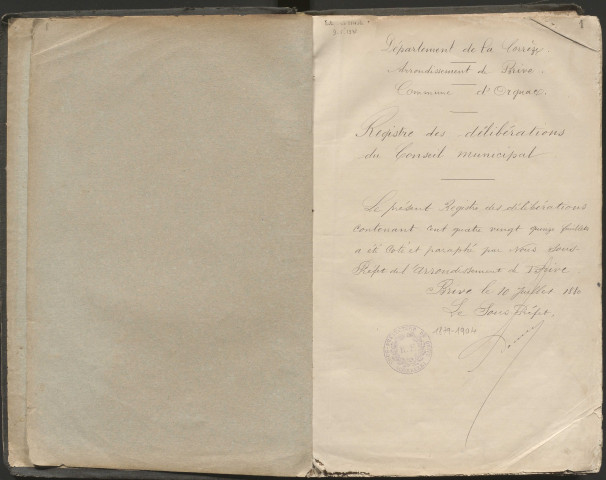 Département de la Corrèze
Arrondissement de Brive
Commune d'Orgnac
Registre des délibérations
du Conseil municipal
Le présent Registre des délibérations
contenant cent quatre vingt quinze feuillets
a été coté et paraphé par Nous Sous
Préfet de l'arrondissement de Brive.
Brive le 10 Juillet 18
Le Sous Préfet.
1879-1904